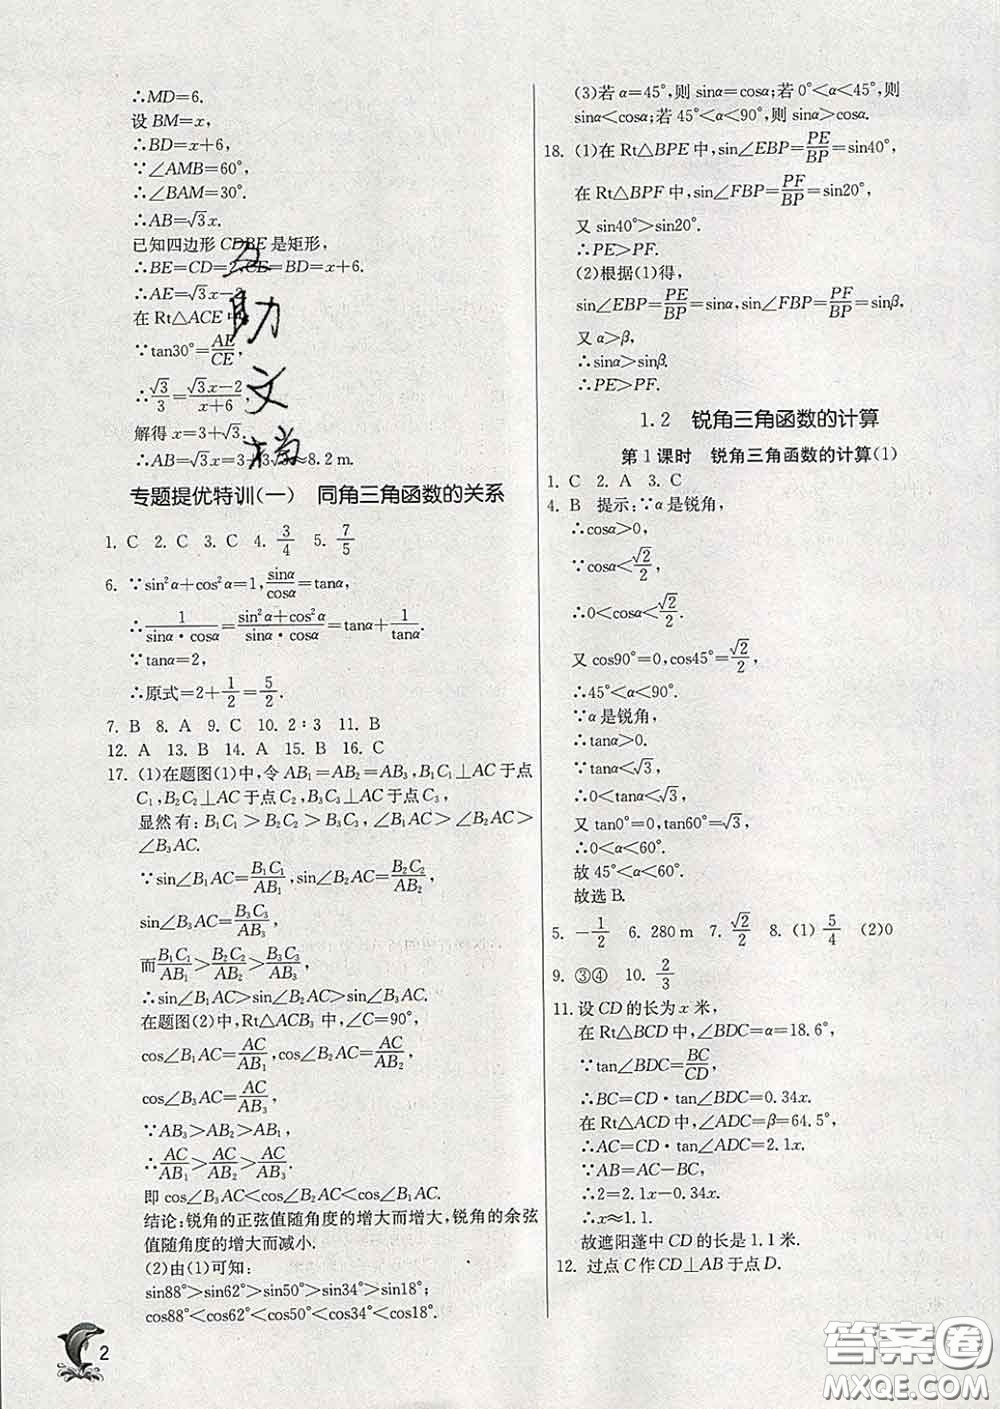 ∴MD=6.
设 BM=x,
∴BD=x+6,
∵∠AMB=60°,
∴∠BAM=30°.
∴AB=√3x.
已知四边形 CDBE 是矩形,
∴BE=CD=2,CE=BD=x+6.
∴AE=√3x-2.
在 Rt△ACE 中,
∵tan30°=AE/CE,
∴√3/3=(√3x-2)/(x+6),
解得 x=3+√3.
∴AB=√3x=3+3√3≈8.2 m.
专题提优特训(一) 同角三角函数的关系
1. C 2. C 3. C 4. 3/4 5. 7/5
6. ∵sin²α+cos²α=1,sinα/cosα=tanα,
∴1/(sinα·cosα)=(sin²α+cos²α)/(sinα·cosα)=tanα+1/tanα.
∵tanα=2,
∴原式=2+1/2=5/2.
7. B 8. A 9. C 10. 2∶3 11. B
12. A 13. B 14. A 15. B 16. C
17. (1)在题图(1)中,令 AB₁=AB₂=AB₃,B₁C₁⊥AC于点
C₁,B₂C₂⊥AC于点 C₂,B₃C₃⊥AC于点 C₃,
显然有:B₁C₁>B₂C₂>B₃C₃,∠B₁AC>∠B₂AC>
∠B₃AC.
∵sin∠B₁AC=B₁C₁/AB₁,sin∠B₂AC=B₂C₂/AB₂,
sin∠B₃AC=B₃C₃/AB₃,
而B₁C₁/AB₁>B₂C₂/AB₂>B₃C₃/AB₃.
∴sin∠B₁AC>sin∠B₂AC>sin∠B₃AC.
在题图(2)中,Rt△ACB₃ 中,∠C=90°,
cos∠B₁AC=AC/AB₁,cos∠B₂AC=AC/AB₂,
cos∠B₃AC=AC/AB₃,
∵AB₃>AB₂>AB₁,
∴AC/AB₁>AC/AB₂>AC/AB₃.
即 cos∠B₃AC<cos∠B₂AC<cos∠B₁AC.
结论:锐角的正弦值随角度的增大而增大,锐角的余弦
值随角度的增大而减小.
(2)由(1)可知:
sin88°>sin62°>sin50°>sin34°>sin18°;
cos88°<cos62°<cos50°<cos34°<cos18°.
2
(3)若 α=45°,则 sinα=cosα;若 0°<α<45°,则
sinα<cosα;若 45°<α<90°,则 sinα>cosα.
18. (1)在 Rt△BPE 中,sin∠EBP=PE/BP=sin40°,
在 Rt△BPF 中,sin∠FBP=PF/BP=sin20°,
又 sin40°>sin20°.
∴PE>PF.
(2)根据(1)得,
sin∠EBP=PE/BP=sinα,sin∠FBP=PF/BP=sinβ,
又 α>β,
∴sinα>sinβ.
∴PE>PF.
1.2 锐角三角函数的计算
第 1 课时 锐角三角函数的计算(1)
1. C 2. A 3. C
4. B 提示:∵α是锐角,
∴cosα>0,
∵cosα<√2/2,
∴0<cosα<√2/2.
又 cos90°=0,cos45°=√2/2,
∴45°<α<90°.
∵α是锐角,
∴tanα>0.
∵tanα<√3,
∴0<tanα<√3,
又 tan0°=0,tan60°=√3,
∴0<α<60°.
故 45°<α<60°.
故选 B.
5. -1/2 6. 280 m 7. √2/2 8. (1) 5/4 (2)0
9. ③④ 10. 2/3
11. 设 CD 的长为 x 米,
在 Rt△BCD 中,∠BDC=α=18.6°,
∵tan∠BDC=BC/CD,
∴BC=CD·tan∠BDC=0.34x.
在 Rt△ACD 中,∠ADC=β=64.5°,
∴AC=CD·tan∠ADC=2.1x.
∵AB=AC-BC,
∴2=2.1x-0.34x.
∴x≈1.1.
故遮阳蓬中 CD 的长是 1.1 米.
12. 过点 C 作 CD⊥AB 于点 D.
互
助
文
档
答案圈
MXQE.COM